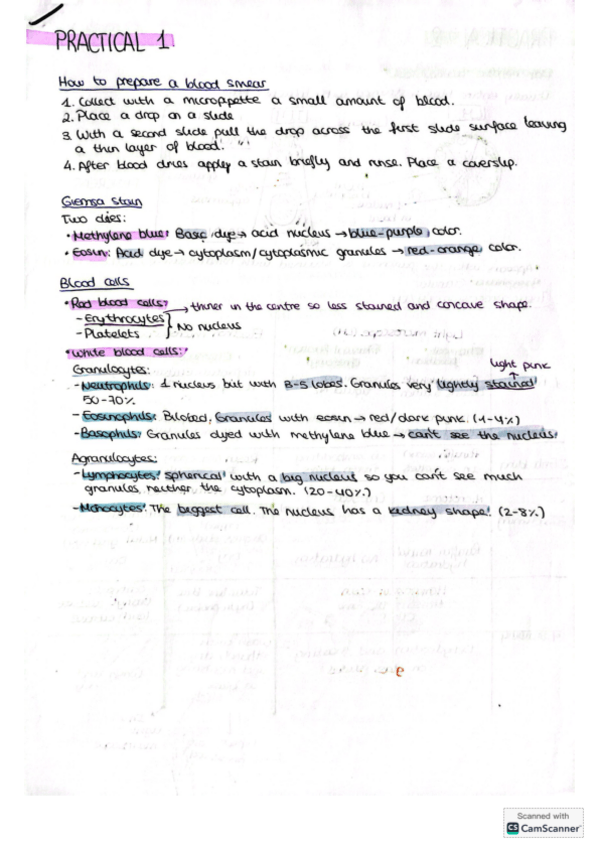 PRACTICAL 1
How to prepare a blood smear
1. Collect with a micropipette a small amount of blood.
2. Place a drop on a slide
3. With a second slide pull the drop across the first slide surface leaving
a thin layer of blood.
4. After blood dries apply a stain briefly and rinse. Place a coverslip.
Giemsa Stain
Two dies:
• Methylene blue: Basic dye → acid nucleus → blue-purple color.
• Eosin: Acid dye → cytoplasm/cytoplasmic granules → red-orange color.
Blood cells
• Red blood cells: → thinner in the centre so less stained and concave shape.
- Erythrocytes
- Platelets } No nucleus
• White blood cells:
Granulocytes:
light pink
- Neutrophils: 1 nucleus but with 3-5 lobes. Granules very lightly stained
50-70%
- Eosinophils: Bilobed, Granules with eosin → red/dark pink. (1-4%)
- Basophils: Granules dyed with methylene blue → can't see the nucleus.
Agranulocytes:
- Lymphocytes: spherical with a big nucleus so you can't see much
granules, neither the cytoplasm. (20-40%)
- Monocytes: The biggest cell. The nucleus has a kidney shape. (2-8%)
Scanned with
CS CamScanner